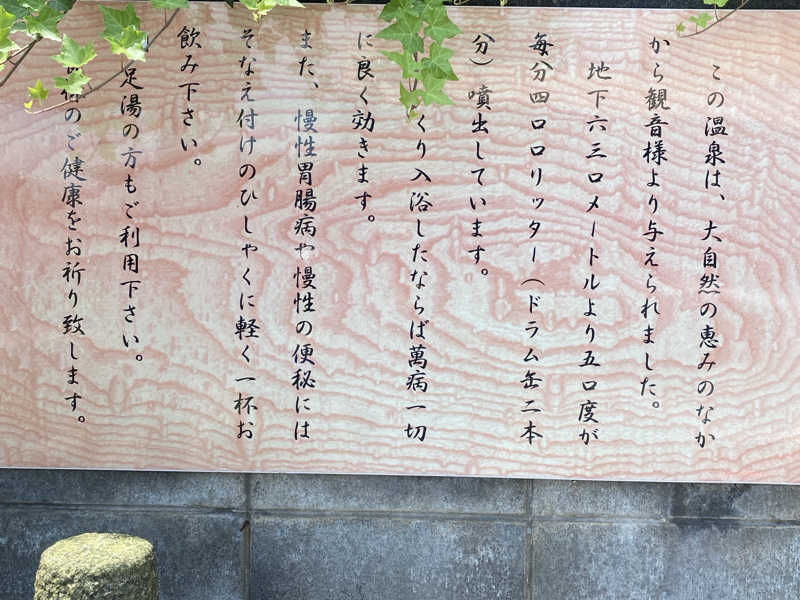 この温泉は、大自然の恵みのなか
から観音様より与えられました。
地下六三〇メートルより五〇度が
毎分四〇〇リッター（ドラム缶二本
分）噴出しています。
くり入浴したならば萬病一切
に良く効きます。
また、慢性胃腸病や慢性の便秘には
そなえ付けのひしゃくに軽く一杯お
飲み下さい。
足湯の方もご利用下さい。
様のご健康をお祈り致します。